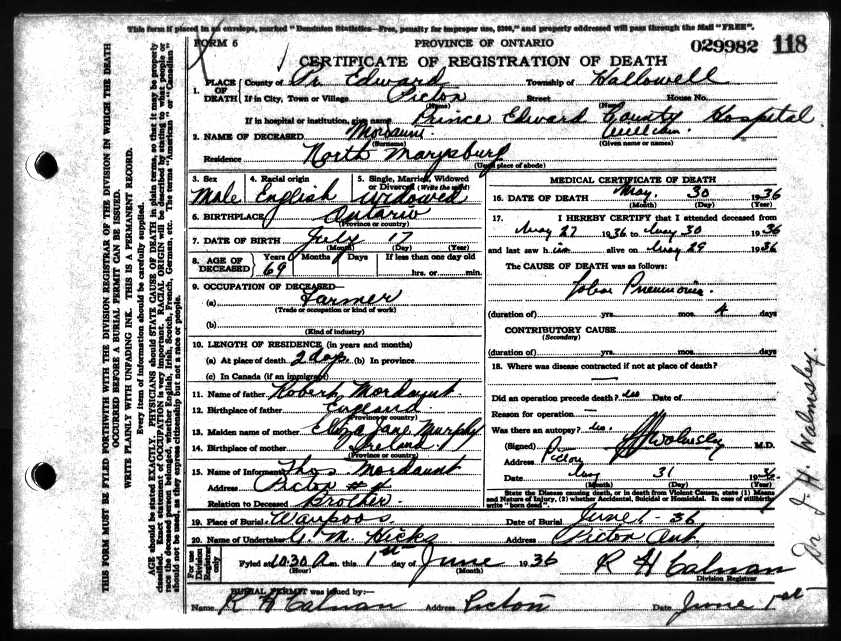 This form if placed in an envelope, marked "Dominion Statistics—Free, penalty for improper use, $300," and property addressed will pass through the Mail "FREE".
FORM 6 PROVINCE OF ONTARIO 029982 118
CERTIFICATE OF REGISTRATION OF DEATH
1. PLACE OF DEATH County of Pr Edward Township of Hallowell
If in City, Town or Village Picton Street House No.
(Name) (Name)
If in hospital or institution, give name Prince Edward County Hospital
2. NAME OF DECEASED Mordaunt William
(Surname) (Given name or names)
Residence North Marysburg
(Usual place of abode)
3. Sex Male
4. Racial origin English
5. Single, Married, Widowed or Divorced (Write the word) Widowed
6. BIRTHPLACE Ontario
(Province or country)
7. DATE OF BIRTH July 17
(Month) (Day) (Year)
8. AGE OF DECEASED Years 69 Months Days If less than one day old
hrs. or min.
9. OCCUPATION OF DECEASED—
(a) Farmer
(Trade or occupation or kind of work)
(b)
(Kind of industry)
10. LENGTH OF RESIDENCE (in years and months)
(a) At place of death 2 days (b) In province
(c) In Canada (if an immigrant)
11. Name of father Robert Mordaunt
12. Birthplace of father England
(Province or country)
13. Maiden name of mother Eliza Jane Murphy
14. Birthplace of mother Ireland
(Province or country)
15. Name of Informant Thos Mordaunt
Address Picton #4
Relation to Deceased Brother
MEDICAL CERTIFICATE OF DEATH
16. DATE OF DEATH May 30 1936
(Month) (Day) (Year)
17. I HEREBY CERTIFY that I attended deceased from
May 27 1936 to May 30 1936
and last saw him alive on May 29 1936
The CAUSE OF DEATH was as follows:
Lobar Pneumonia
(duration of) yrs. mos. 4 days
CONTRIBUTORY CAUSE
(Secondary)
(duration of) yrs. mos. days
18. Where was disease contracted if not at place of death?
—
Did an operation precede death? no Date of
Reason for operation —
Was there an autopsy? no
(Signed) J H Walmsley M.D.
Address Picton
Date May 31 1936
(Month) (Day) (Year)
State the Disease causing death, or in death from Violent Causes, state (1) Means and Nature of Injury, (2) whether Accidental, Suicidal or Homicidal. In case of stillbirth write "born dead".
19. Place of Burial Waupoos Date of Burial June 1 - 36
20. Name of Undertaker G. M. Hicks Address Picton Ont.
For use of Division Registrar only
Fyled at 10:30 A m. this 1st day of June 1936 R H Calnan
(Hour) (Month) Division Registrar
BURIAL PERMIT was issued by:—
Name R H Calnan Address Picton Date June 1st
THIS FORM MUST BE FYLED FORTHWITH WITH THE DIVISION REGISTRAR OF THE DIVISION IN WHICH THE DEATH
OCCURRED BEFORE A BURIAL PERMIT CAN BE ISSUED.
WRITE PLAINLY WITH UNFADING INK. THIS IS A PERMANENT RECORD.
Every item of information should be carefully supplied.
AGE should be stated EXACTLY. PHYSICIANS should STATE CAUSE OF DEATH in plain terms, so that it may be properly
classified. Exact statement of OCCUPATION is very important. RACIAL ORIGIN will be described by stating to what people or
race the deceased person belonged, whether English, Irish, Scotch, French, German, etc. The terms "American" or "Canadian"
should not be used, as they express citizenship but not a race or people.
Dr J. H. Walmsley.